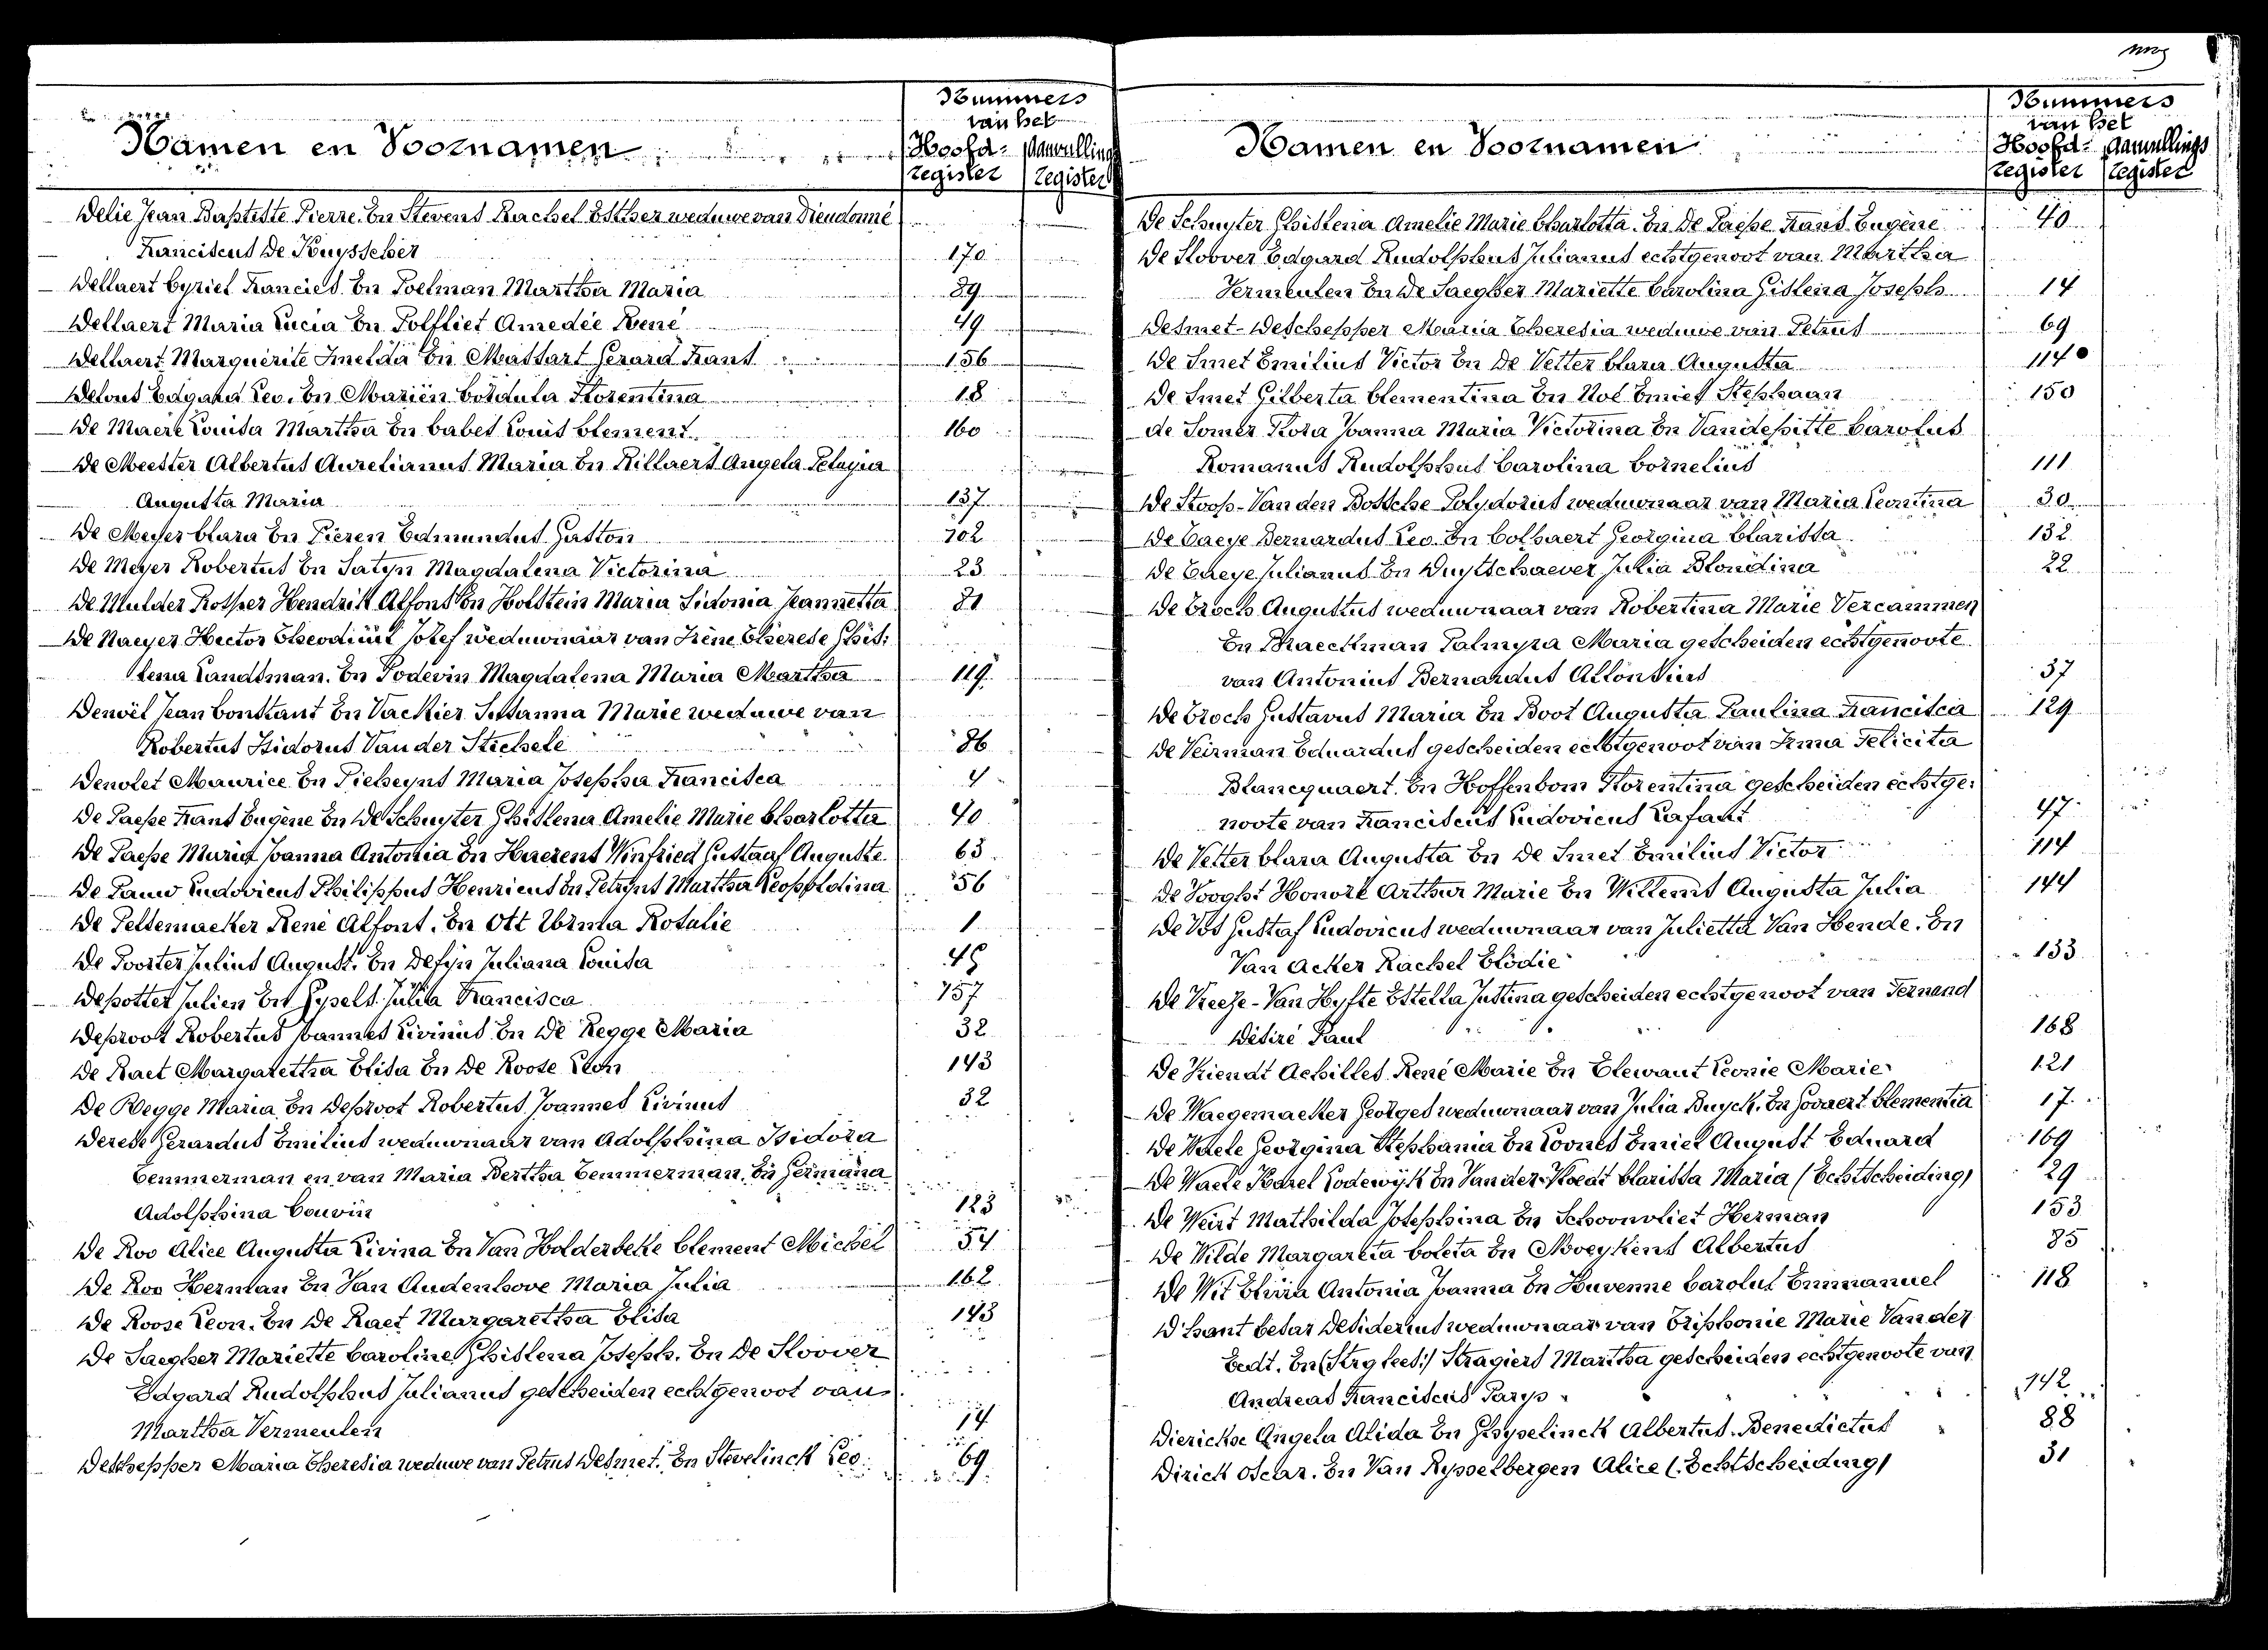 Namen en Voornamen
Nummers
van het
Hoofd- Aanvullings
register register
Delie Jean Baptiste Pierre. En Stevens Rachel Esther weduwe van Dieudonné
Franciscus De Kuyssche 170
Dellaert Cyriel Francies. En Poelman Martha Maria 89
Dellaert Maria Lucia En Polfliet Amedée René 49
Dellaert Marguerite Imelda En Mastart Gerard Frans 156
Delous Edgard Leo. En Mariën Cordula Florentina 18
De Maere Louisa Martha En Cabet Louis Clement. 160
De Meester Albertus Aurelianus Maria En Rillaert Angela Pelagia
Augusta Maria 137
De Meyer Clara En Pieren Edmundus Gaston 102
De Meyer Robertus En Satyn Magdalena Victorina 23
De Mulder Rosper Hendrik Alfons En Holstein Maria Sidonia Jeannetta 81
De Naeyer Hector Theodiuul Jozef weduwnaar van Irène Therese Ghis-
lena Landsman. En Podevin Magdalena Maria Martha 119
Denoël Jean Constant En Vackier Susanna Marie weduwe van
Robertus Isidorus Van der Stichele 86
Denolet Maurice En Tieheyns Maria Josepha Francisca 4
De Paepe Frans Eugène En De Schuyter Ghislena Amelie Marie Charlotta 40
De Paepe Maria Joanna Antonia En Haerens Winfried Gustaaf Auguste 63
De Pauw Ludovicus Philippus Henricus En Petryns Martha Leopoldina 56
De Peltemaeker René Alfons. En Ott Urma Rosalie 1
De Poorter Julius August. En Defyn Juliana Louisa 45
Depotter Julien En Gysels Julia Francisca 157
Deproot Robertus Joannes Livinus En De Regge Maria 32
De Raet Margaretha Elisa En De Roose Leon 143
De Regge Maria En Deproot Robertus Joannes Livinus 32
Derese Gerardus Emilius weduwnaar van Adolphina Isidora
Temmerman en van Maria Bertha Temmerman. En Germana
Adolphina Couvin 123
De Roo Alice Augusta Livina En Van Holderbeke Clement Michel 54
De Roo Herman En Van Oudenhove Maria Julia 162
De Roose Leon. En De Raet Margaretha Elisa 143
De Saegher Mariette Caroline Ghislena Joseph. En De Sloover
Edgard Rudolphus Julianus gescheiden echtgenoot van
Martha Vermeulen 14
Deschepper Maria Theresia weduwe van Petrus Desmet. En Stevelinck Leo 69
Namen en Voornamen
Nummers
van het
Hoofd- Aanvullings
register register
De Schuyter Ghislena Amelie Marie Charlotta. En De Paepe Frans Eugène 40
De Sloover Edgard Rudolphus Julianus echtgenoot van Martha
Vermeulen En De Saegher Mariette Carolina Gislena Joseph 14
Desmet-Deschepper Maria Theresia weduwe van Petrus 69
De Smet Emilius Victor En De Vetter Clara Augusta 114
De Smet Gilberta Clementina En Nol Emiel Stephaan 150
de Somer Flora Joanna Maria Victorina En Vandepitte Carolus
Romanus Rudolphus Carolina Cornelius 111
De Stoop-Van den Bossche Polydorus weduwnaar van Maria Leontina 30
De Taeye Bernardus Leo. En Colpaert Georgina Clarissa 132
De Taeye Julianus En Duytschaever Julia Blondina 22
De Troch Augustus weduwnaar van Robertina Marie Vercammen
En Braeckman Palmyra Maria gescheiden echtgenoote
van Antonius Bernardus Alfonsius 37
De Troch Gustavus Maria En Boot Augusta Paulina Francisca 129
De Veirman Eduardus gescheiden echtgenoot van Irma Felicita
Blancquaert. En Hoffenbom Florentina gescheiden echtge-
noote van Franciscus Ludovicus Lafaut 47
De Vetter Clara Augusta En De Smet Emilius Victor 114
De Vooght Honoré Arthur Marie En Willems Augusta Julia 144
De Vos Gustaf Ludovicus weduwnaar van Julietta Van Hende. En
Van Acker Rachel Elodie 133
De Vreese-Van Hyfte Estella Justina gescheiden echtgenoot van Fernand
Désiré Paul 168
De Vriendt Achilles René Marie En Elewaut Leonie Marie 121
De Waegemaeker Georges weduwnaar van Julia Buyck. En Govaert Clementia 17
De Waele Georgina Stephania En Loones Emiel August Eduard 169
De Waele Karel Lodewyk En Van der Voedt Clarissa Maria (Echtscheiding) 29
De Weirt Mathilda Josephina En Schoonvliet Herman 153
De Wilde Margareta Coleta En Moeykens Albertus 85
De Wit Elvira Antonia Joanna En Huvenne Carolus Emmanuel 118
D'hont Cesar Desiderius weduwnaar van Triphonie Marie Van der
Eedt. En (Strg lees:) Stragiers Martha gescheiden echtgenoote van
Andreas Franciscus Parys 142
Dierickx Angela Alida En Ghyselinck Albertus. Benedictus 88
Dirick Oscar. En Van Rysselbergen Alice (Echtscheiding) 31